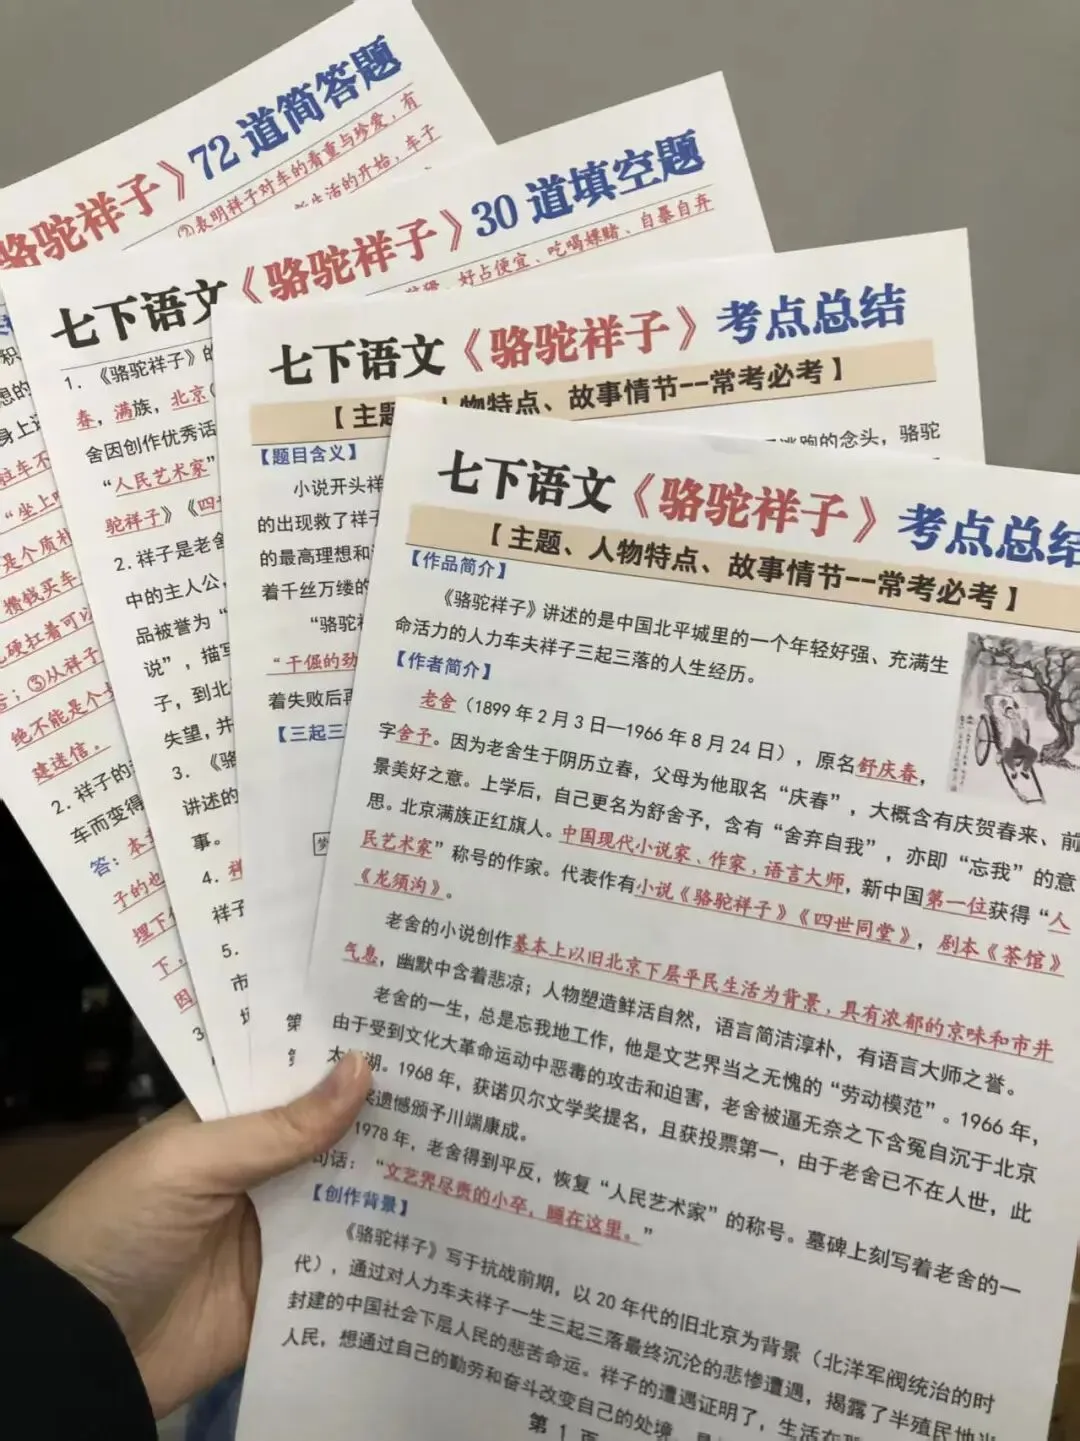 骆驼祥子》72道简答题
②表明祥子对车的看重与珍爱，有
生活的开始，车子
身上
粒车不
“坐上
是个质朴
攒钱买车
硬扛着可以
；③从祥子
绝不能是个
建迷信。
2. 祥子的
车而变得
答：本
子的也
埋下
下，
因
3
七下语文《骆驼祥子》30道填空题
好占便宜、吃喝嫖赌、自暴自弃
1. 《骆驼祥子》的
春，满族，北京
舍因创作优秀话
“人民艺术家”
驼祥子》《四
2. 祥子是老舍
中的主人公，
品被誉为“
说”，描写
子，到北
失望，并
3. 《骆
讲述的
事。
4. 祥
祥子
5.
市
七下语文《骆驼祥子》考点总结
【主题、人物特点、故事情节--常考必考】
逃跑的念头，骆驼
【题目含义】
小说开头祥
的出现救了祥子
的最高理想和
着千丝万缕的
“骆驼祥
“干倔的劲
着失败后再
【三起三
第
七下语文《骆驼祥子》考点总结
【主题、人物特点、故事情节--常考必考】
【作品简介】
《骆驼祥子》讲述的是中国北平城里的一个年轻好强、充满生
命活力的人力车夫祥子三起三落的人生经历。
【作者简介】
老舍（1899年2月3日—1966年8月24日），原名舒庆春，
字舍予。因为老舍生于阴历立春，父母为他取名“庆春”，大概含有庆贺春来、前
景美好之意。上学后，自己更名为舒舍予，含有“舍弃自我”，亦即“忘我”的意
思。北京满族正红旗人。中国现代小说家、作家，语言大师，新中国第一位获得“人
民艺术家”称号的作家。代表作有小说《骆驼祥子》《四世同堂》，剧本《茶馆》
《龙须沟》。
老舍的小说创作基本上以旧北京下层平民生活为背景，具有浓郁的京味和市井
气息，幽默中含着悲凉；人物塑造鲜活自然，语言简洁淳朴，有语言大师之誉。
老舍的一生，总是忘我地工作，他是文艺界当之无愧的“劳动模范”。1966年，
由于受到文化大革命运动中恶毒的攻击和迫害，老舍被逼无奈之下含冤自沉于北京
太 湖。1968年，获诺贝尔文学奖提名，且获投票第一，由于老舍已不在人世，此
奖遗憾颁予川端康成。
1978年，老舍得到平反，恢复“人民艺术家”的称号。墓碑上刻写着老舍的一
句话：“文艺界尽责的小卒，睡在这里。”
【创作背景】
《骆驼祥子》写于抗战前期，以20年代的旧北京为背景（北洋军阀统治的时
代），通过对人力车夫祥子一生三起三落最终沉沦的悲惨遭遇，揭露了半殖民地半
封建的中国社会下层人民的悲苦命运。祥子的遭遇证明了，生活在
人民，想通过自己的勤劳和奋斗改变自己的处境，是
第 1 页